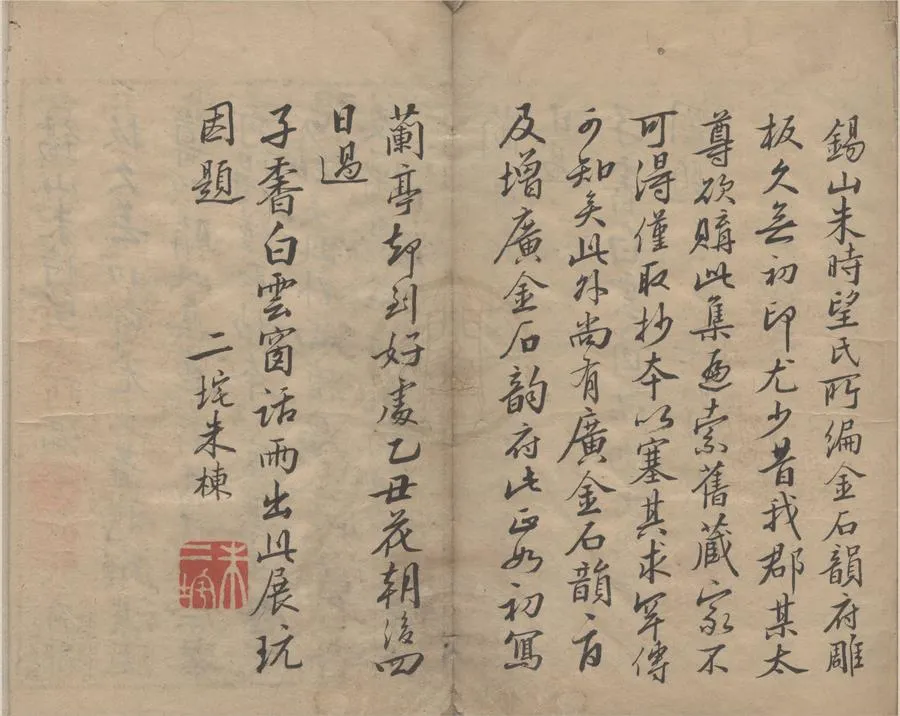 錫山朱時望氏所編金石韻府雕
板久無初印尤少昔我郡某太
尊欲購此集遍索舊藏家不
可得僅取抄本以塞其求罕傳
可知矣此外尚有廣金石韻府
及增廣金石韵府此正如初寫
蘭亭却到好處乙丑花朝後四
日過
子香白雲窗話雨出此展玩
因題
二垞朱棟
朱二垞